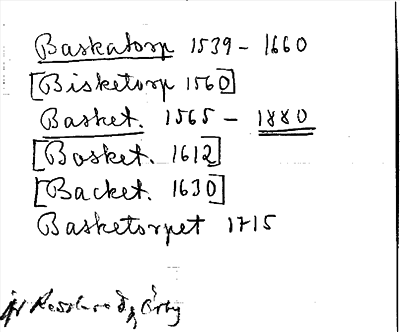 Baskatorp 1539 - 1660
[Bisketorp 1560]
Basket. 1565 - 1880
[Bosket. 1612]
[Backet. 1630]
Basketorpet 1715